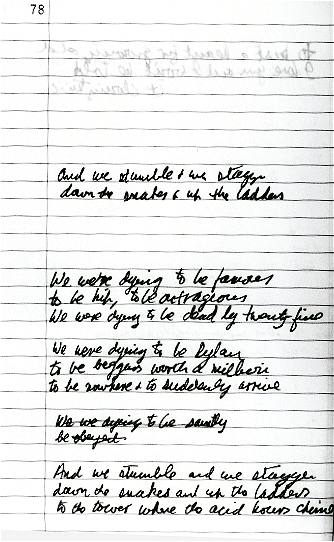 78
And we stumble & we stagger
down the snakes & up the ladders
We were dying to be famous
to be hip, to be outrageous
We were dying to be dead by twenty five
We were dying to be Dylan
to be beggars worth a million
to be nowhere & to suddenly arrive
We we dying to be saintly
be obeyed
And we stumble and we stagger
down the snakes and up the ladders
to the tower where the acid hours chime